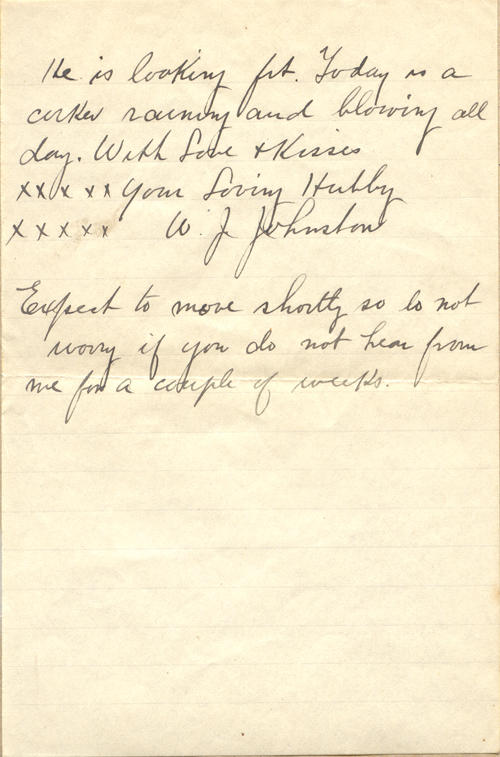 He is looking fit. Today is a
corker raining and blowing all
day. With Love + Kisses
xx x xx Your Loving Hubby
x x x x x W. J. Johnston
Expect to move shortly so do not
worry if you do not hear from
me for a couple of weeks.